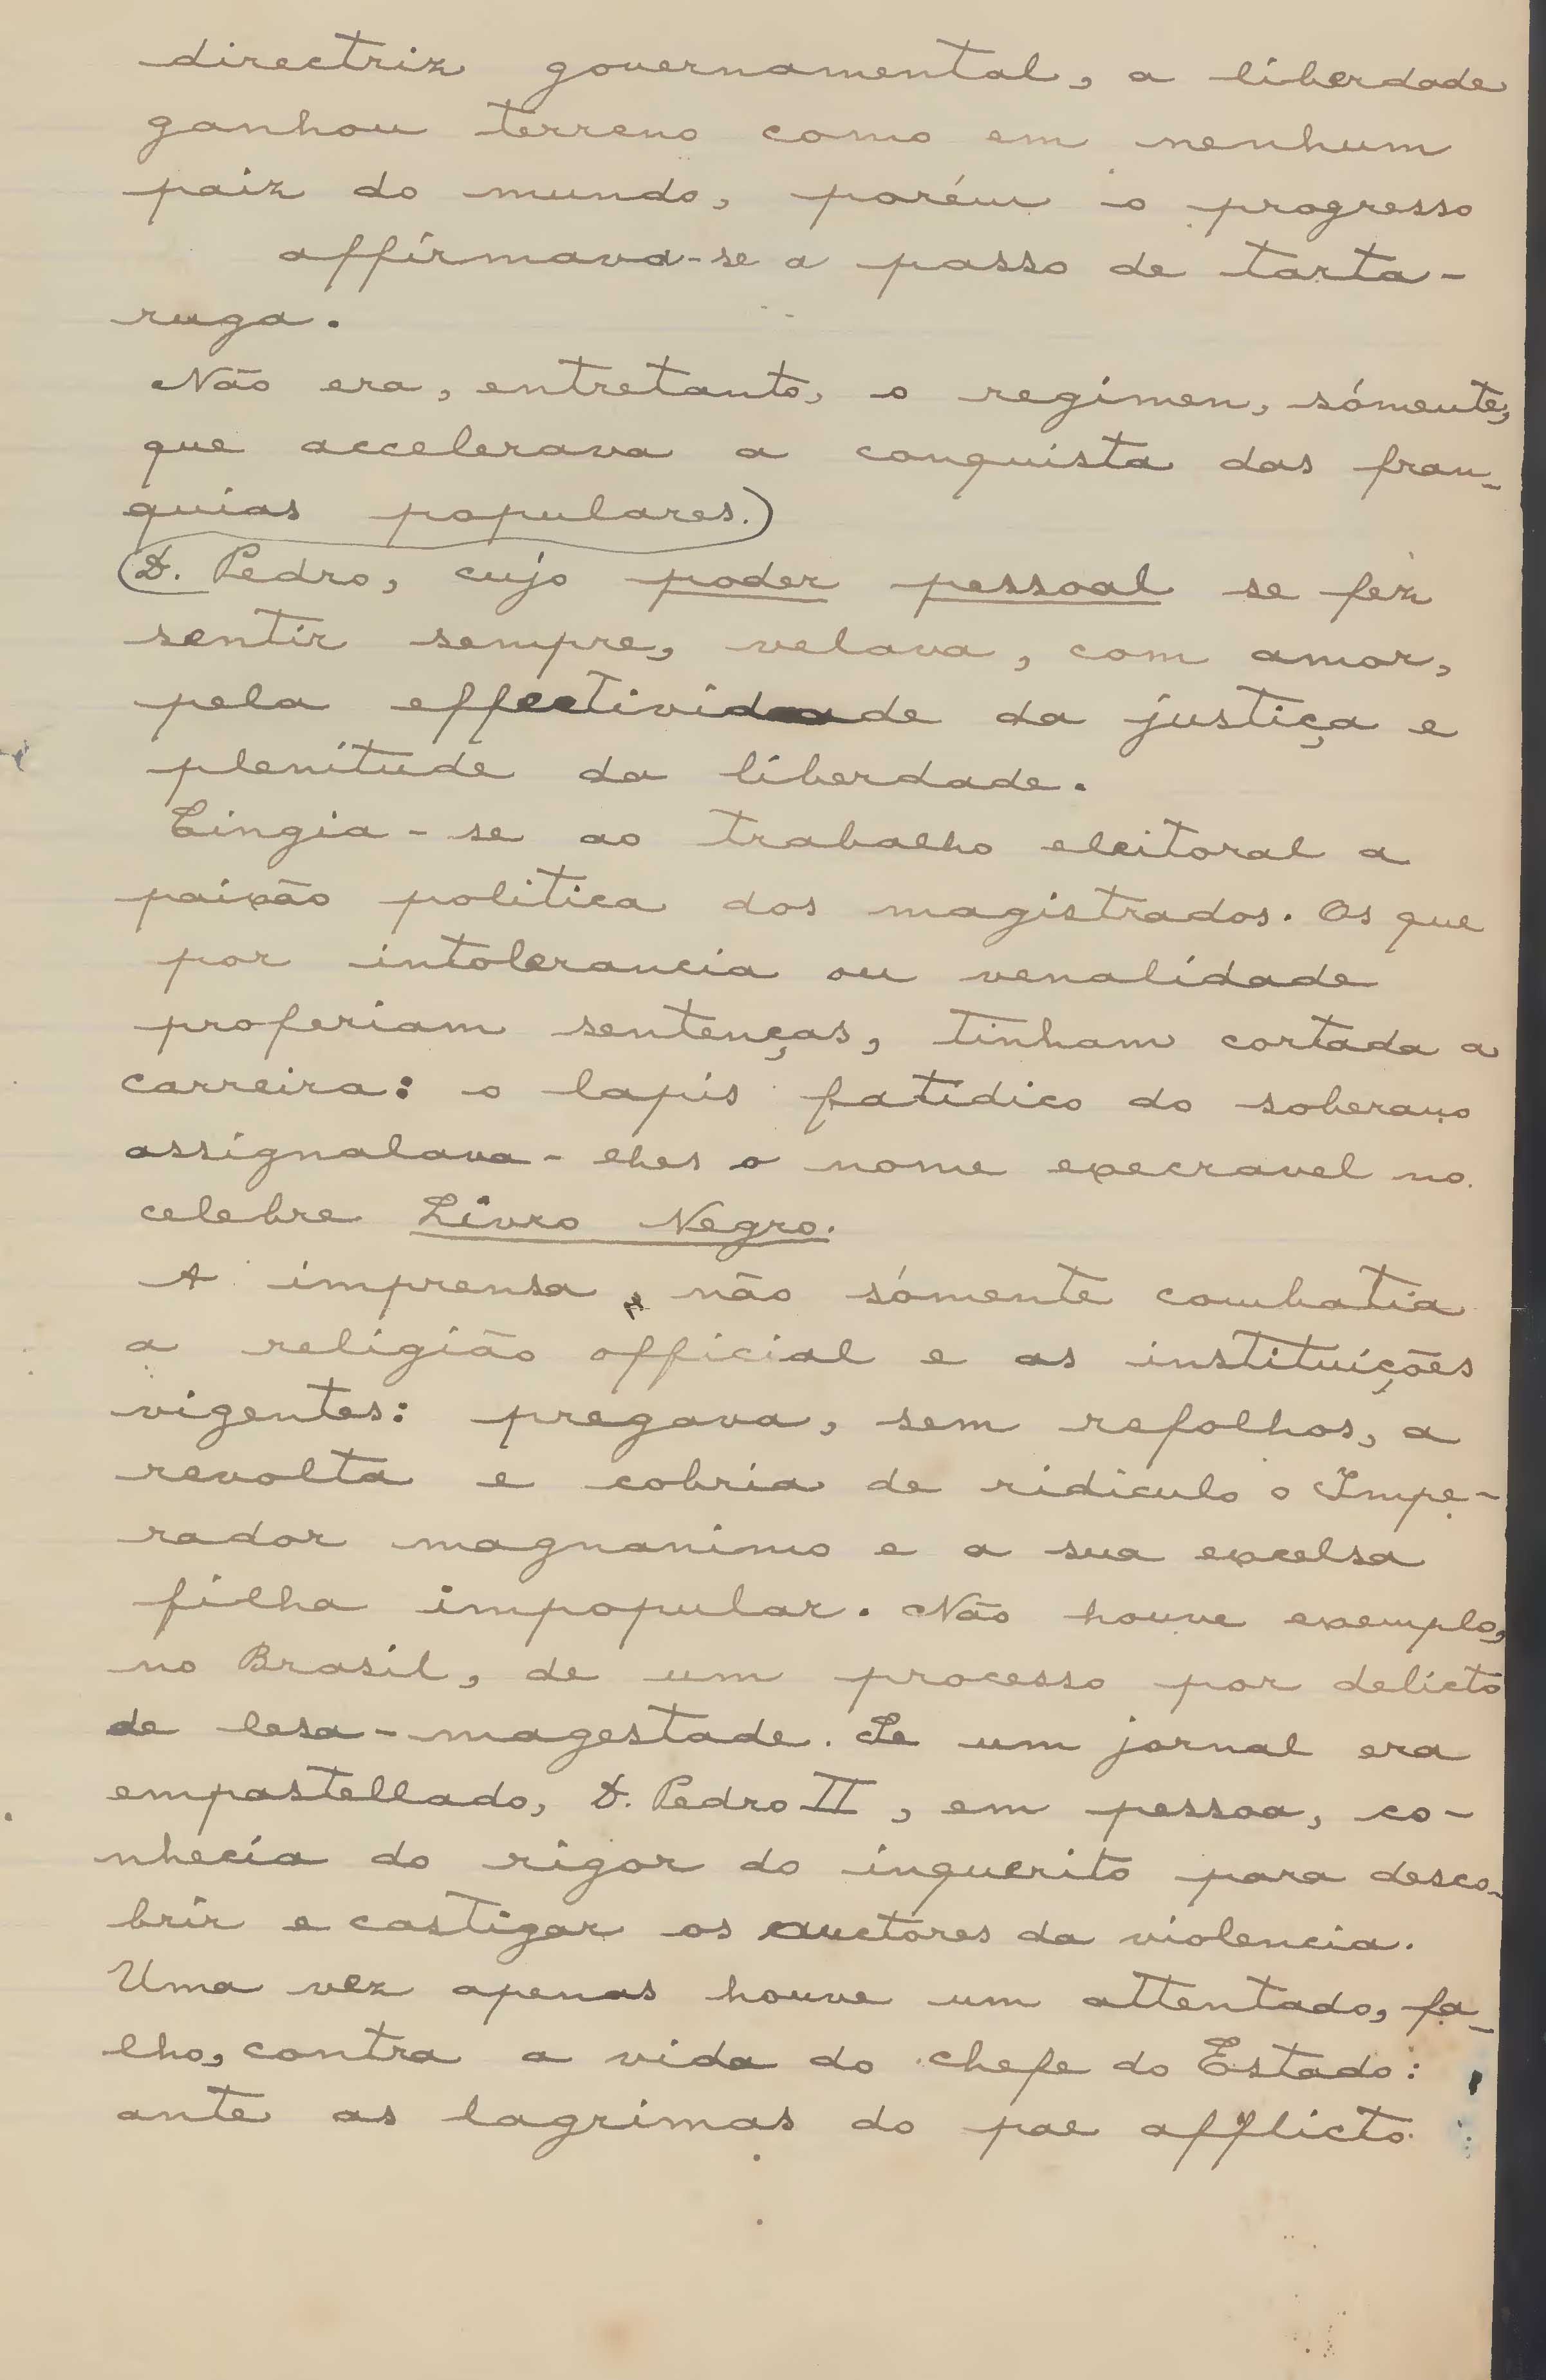 directriz governamental, a liberdade
ganhou terreno como em nenhum
paiz do mundo, porém o progresso
affirmava-se a passo de tarta-
ruga.
Não era, entretanto, o regimen, sómente,
que accelerava a conquista das fran-
quias populares.)
(D. Pedro, cujo poder pessoal se fez
sentir sempre, velava, com amor,
pela effectividade da justiça e
plenitude da liberdade.
Cingia-se ao trabalho eleitoral a
paixão politica dos magistrados. Os que
por intolerancia ou venalidade
proferiam sentenças, tinham cortada a
carreira: o lapis fatidico do soberano
assignalava-lhes o nome execravel no
celebre Livro Negro.
A imprensa, não sómente combatia
a religião official e as instituições
vigentes: pregava, sem refolhos, a
revolta e cobria de ridiculo o Impe-
rador magnanimo e a sua excelsa
filha impopular. Não houve exemplo,
no Brasil, de um processo por delicto
de lesa-magestade. Se um jornal era
empastellado, D. Pedro II, em pessoa, co-
nhecia do rigor do inquerito para desco-
brir e castigar os auctores da violencia.
Uma vez apenas houve um attentado, fa-
lho, contra a vida do chefe do Estado:
ante as lagrimas do pae afflicto